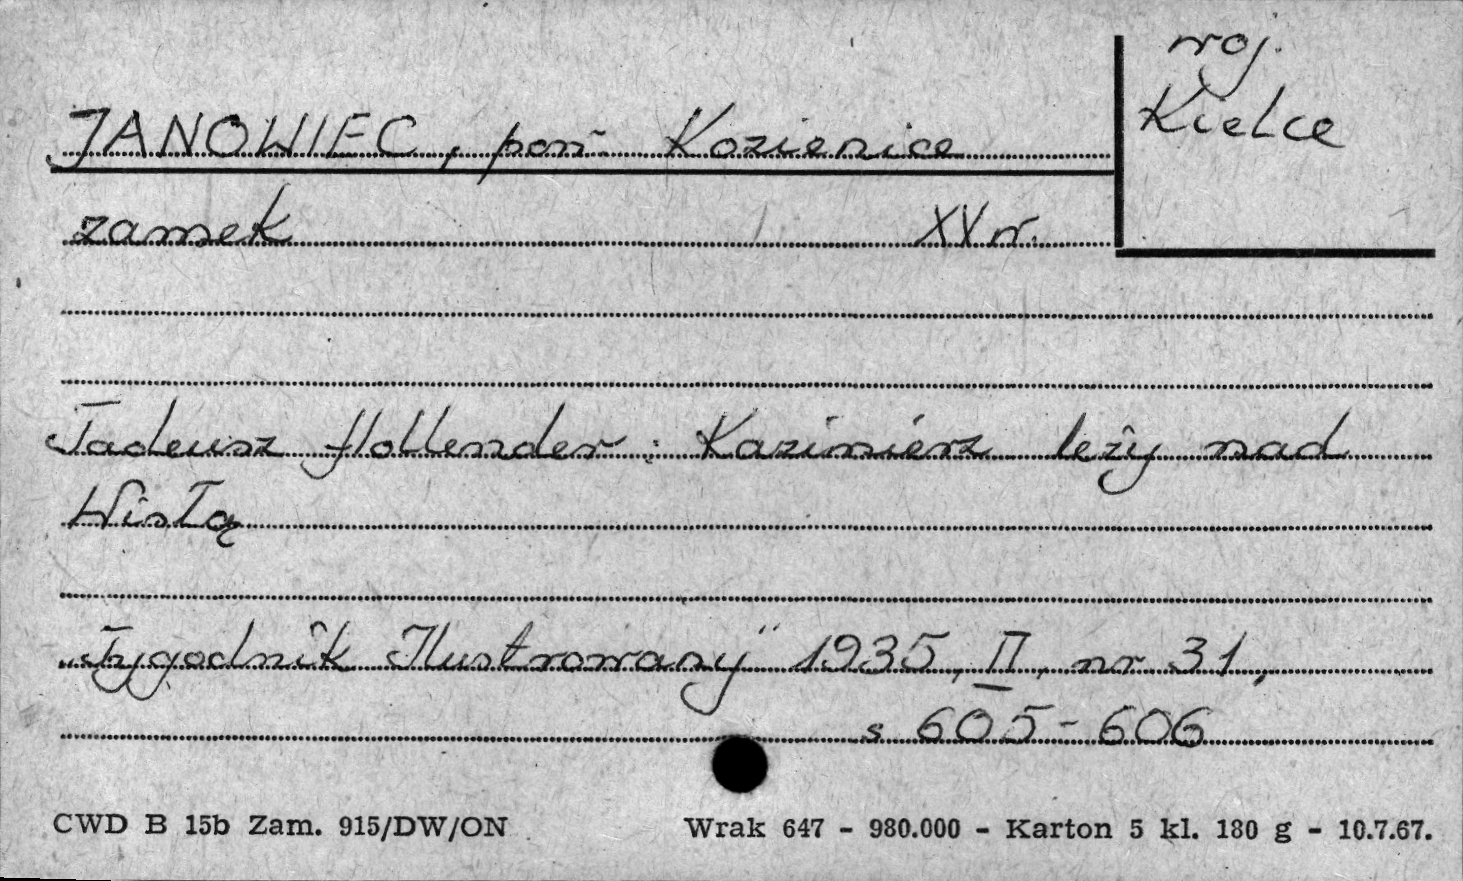 woj.
Kielce
JANOWIEC, pow. Kozienice
zamek XV w.
Tadeusz Hollender: Kazimierz leży nad
Wisłą
„Tygodnik Ilustrowany" 1935, II, nr 31,
s 605-606
CWD B 15b Zam. 915/DW/ON Wrak 647 - 980.000 - Karton 5 kl. 180 g - 10.7.67.